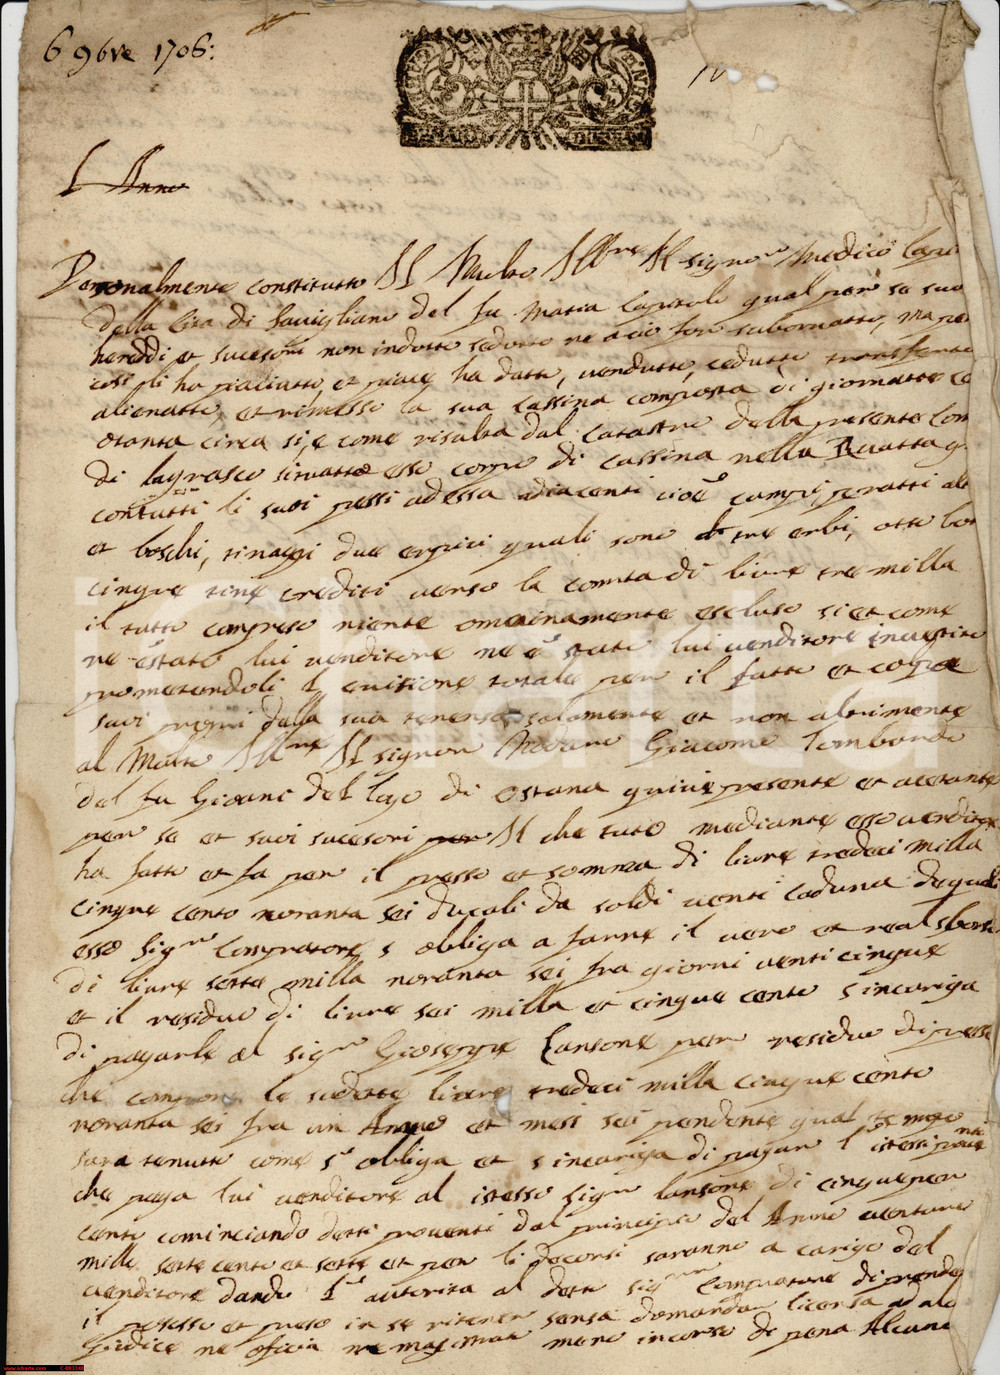 6 9bre 1706:
L Anno
Personalmente constitutto Il Molto Ill.re Il signor Medico
della Cita di Savigliano del fu Matia qual per se suoi
heredi et sucesori non indotto sedotto ne a ciò for subornatto, ma per
cosi li ha piaciutto, et piace ha datto, vendutto, cedutto transferto
alienatto, et rimesso la sua cassina composta di giornatte
otanta circa si, e come risulta dal Catastro della presente Com
di lagnasco situatta esso corpo di cassina nella Ruatta
con tutti li suoi pessi adessa adiacenti cioè campi, peratti
et boschi, tinaggi due erpici quali sono tre erbi, otto
cinque tine crediti verso la comta di livre tre milla
il tutto compreso niente ominamente escluso si et come
ne è stato lui venditore ne è stato lui venditore investito
prometendoli l evitione totale per il fatto et colpa
suoi propri dalla sua solamente et non altrimente
al Molto Ill.re Il signor Medico Giacomo Lombardo
del fu Gioani del logo di Ostana quivi presente et acetante
per se et suoi sucesori per Il che tuto mediante esso venditore
ha fatto et fa per il presso et somma di livre tredeci milla
cinque cento novanta sei ducali da soldi venti caduna de quali
esso sig.r Compratore s obliga a farne il vero et real sborso
di livre sette milla novanta sei fra giorni venti cinque
et il residuo di livre sei milla et cinque cento s incariga
di pagarle al sig.r Gioseppe Cansone per residuo di presso
che compone le sudette livre tredeci milla cinque cento
novanta sei fra un Anno et mesi sei pendente qual tempo
sara tenutto come s obliga et s incariga di pagar l istessi
che paga lui venditore al istesso sig.r Cansone di cinque per
cento cominciando detti proventi dal principio del Anno venturo
mille sette cento et sette et per li decorsi saranno a carigo del
venditore dando l autorita al detto sig.r Compratore di prender
il possesso et preso in se ritener sensa domandar licensa ad alc
Giudice ne oficia ne meno incorso di pena Alcuna
www.icharta.com